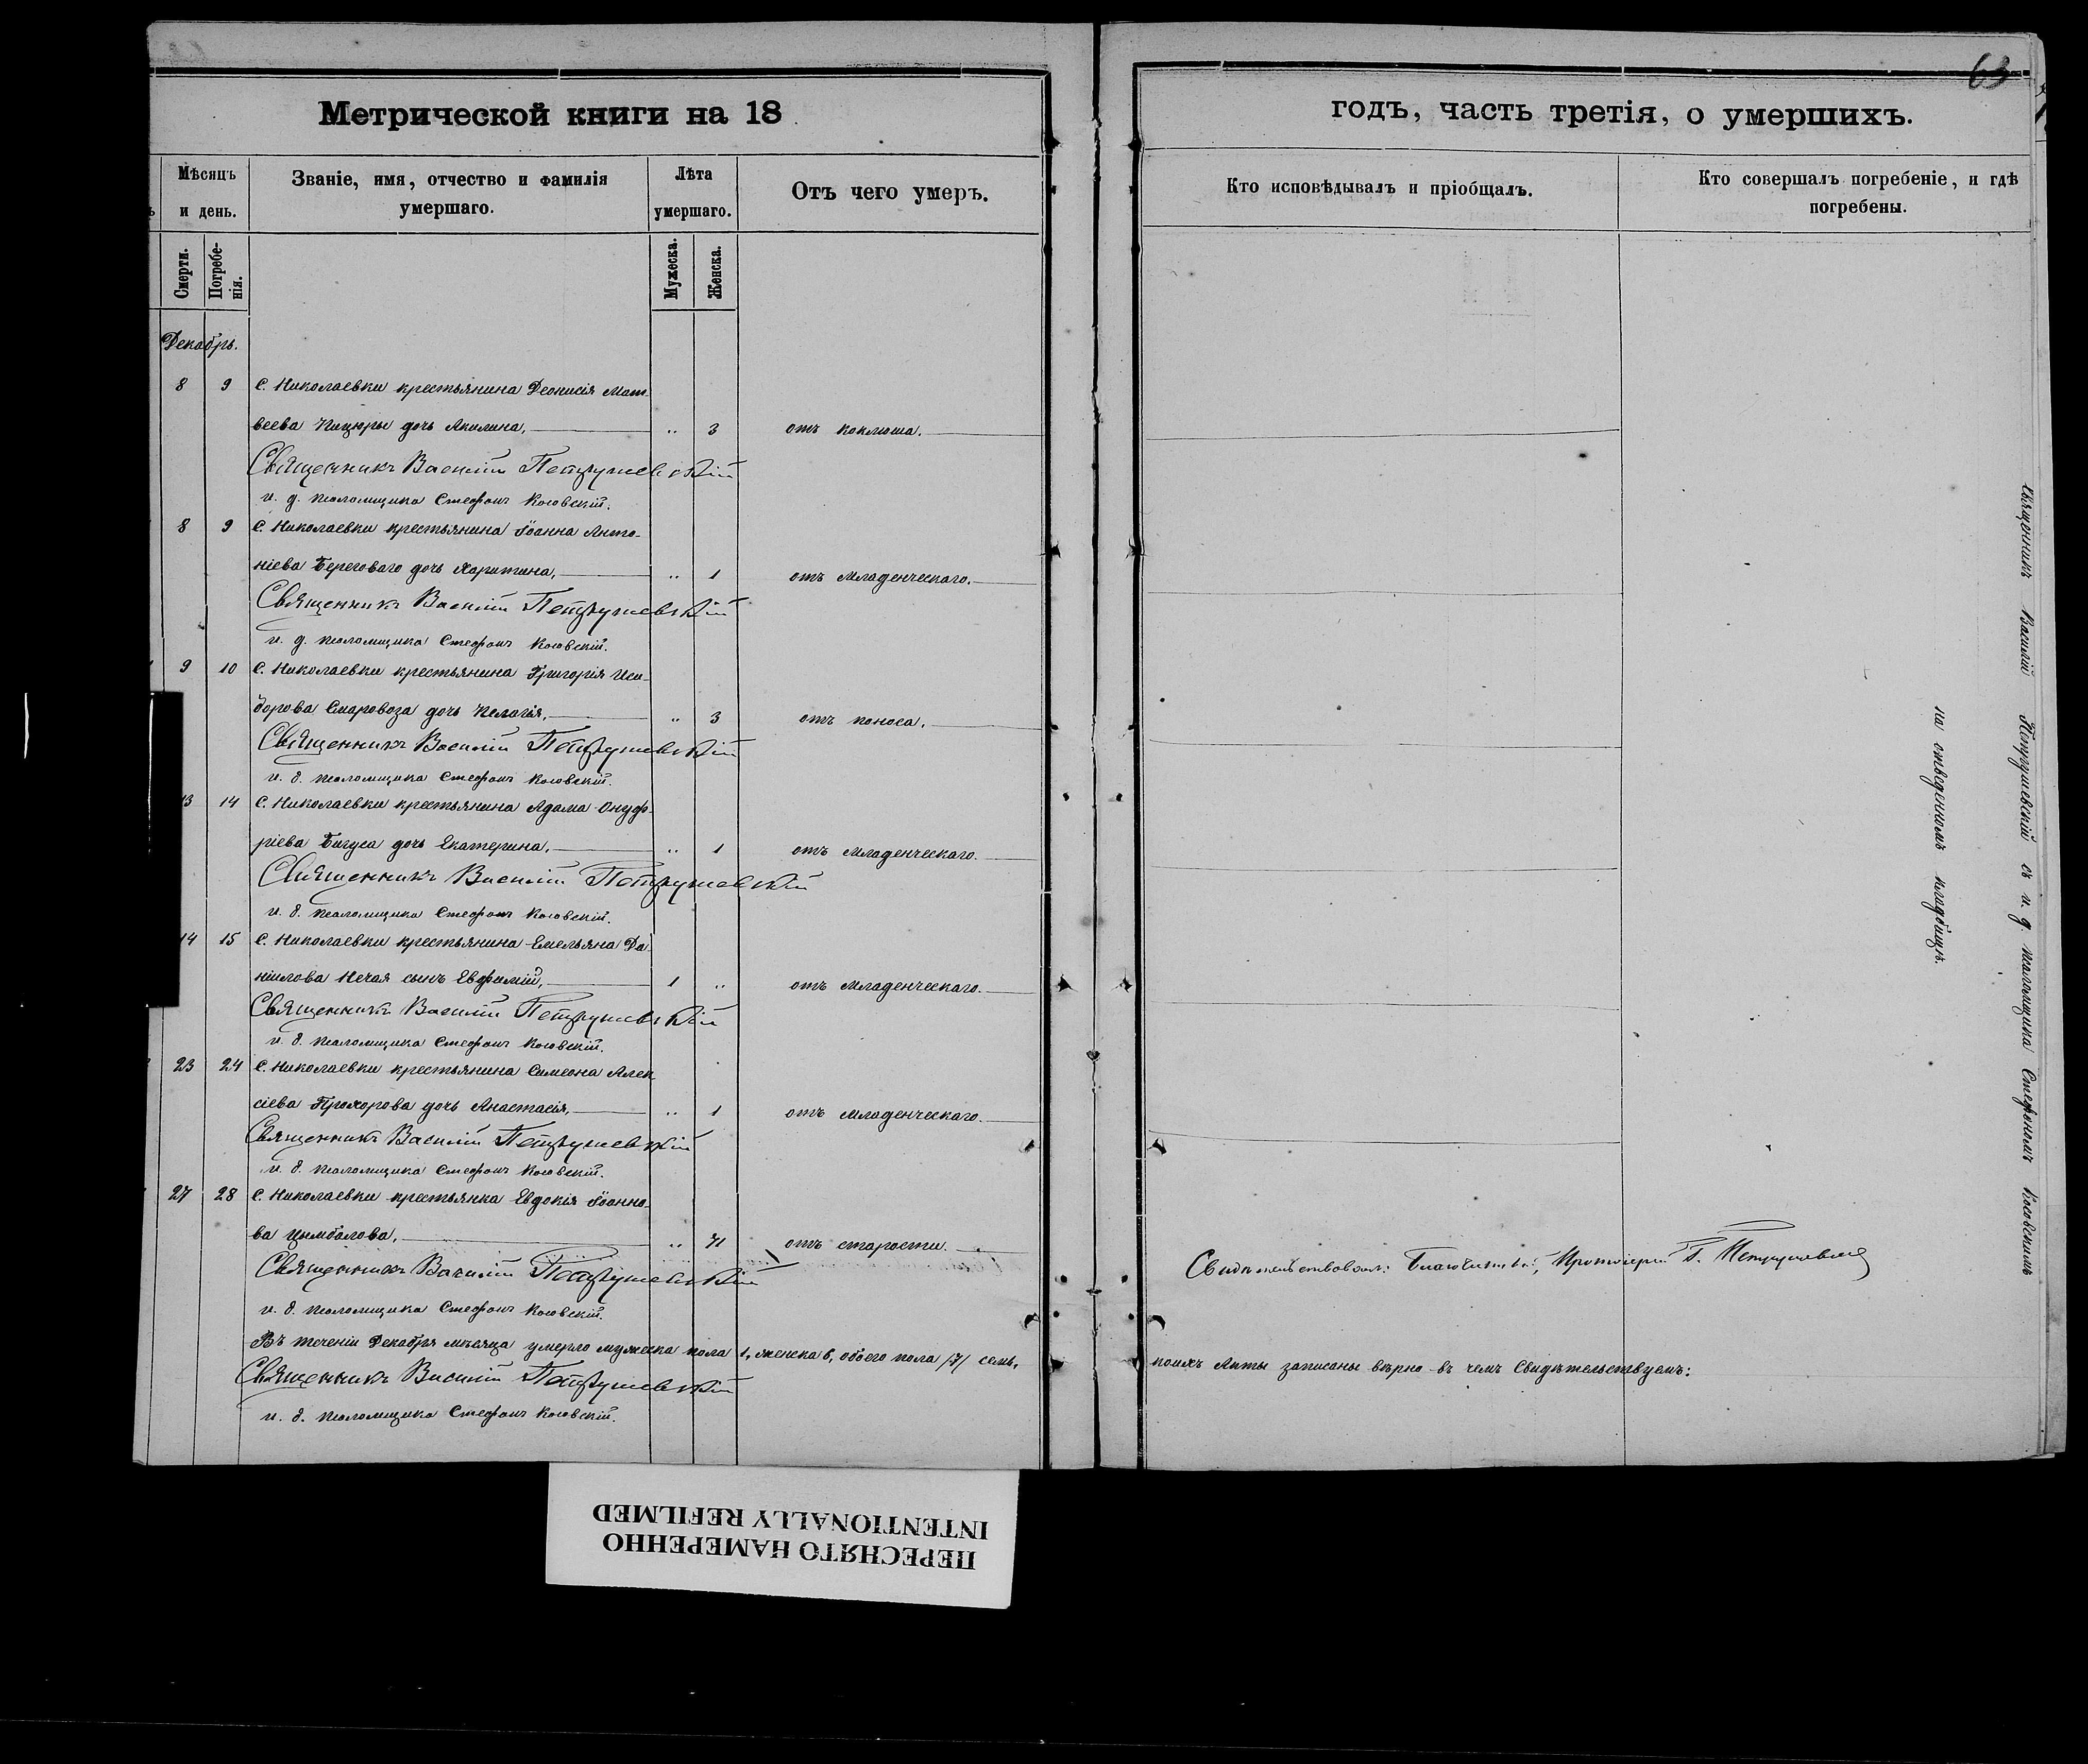 63
Метрической книги на 18
годъ, часть третія, о умершихъ.
Мѣсяцъ
и день.
Званіе, имя, отчество и фамилія
умершаго.
Лѣта
умершаго.
Отъ чего умеръ.
Кто исповѣдывалъ и пріобщалъ.
Кто совершалъ погребеніе, и гдѣ
погребены.
Смерти.
Погребе-
нія.
Мужеска.
Женска.
Декабрь.
8 9 С. Николаевки крестьянина Деонисія Мат-
веева дочь Акилина, „ 3 отъ коклюша.
Священникъ Василій Петрушевскій
и. д. псаломщика Стефанъ Косовскій.
8 9 С. Николаевки крестьянина Іоанна Анто-
ніева Береговаго дочь Харитина, „ 1 отъ младенческаго.
Священникъ Василій Петрушевскій
и. д. псаломщика Стефанъ Косовскій.
9 10 С. Николаевки крестьянина Григорія Иси-
дорова дочь Пелагія, „ 3 отъ поноса.
Священникъ Василій Петрушевскій
и. д. псаломщика Стефанъ Косовскій.
13 14 С. Николаевки крестьянина Адама Онуф-
ріева Бигуса дочь Екатерина, „ 1 отъ младенческаго.
Священникъ Василій Петрушевскій
и. д. псаломщика Стефанъ Косовскій.
14 15 С. Николаевки крестьянина Емельяна Да-
ніилова Нечая сынъ Евфимій, 1 „ отъ младенческаго.
Священникъ Василій Петрушевскій
и. д. псаломщика Стефанъ Косовскій.
23 24 С. Николаевки крестьянина Симеона Алек
сіева Прохорова дочь Анастасія, „ 1 отъ младенческаго.
Священникъ Василій Петрушевскій
и. д. псаломщика Стефанъ Косовскій.
27 28 С. Николаевки крестьянка Евдокія Іоанно-
ва Цымбалова, „ 71 отъ старости.
Священникъ Василій Петрушевскій
и. д. псаломщика Стефанъ Косовскій.
Въ теченіи Декабря мѣсяца умерло мужеска пола 1, женска 6, обоего пола /7/ семь,
коихъ Акты записаны вѣрно въ чемъ Свидѣтельствуемъ:
Священникъ Василій Петрушевскій
и. д. псаломщика Стефанъ Косовскій.
Священникъ Василій Петрушевскій съ и. д. псаломщика Стефаномъ Косовскимъ
на отведенномъ кладбищѣ.
Свидѣтельствовалъ: Благочинный, Протоіерей Петрушевскій
ПЕРЕСНЯТО НАМЕРЕННО
INTENTIONALLY REFILMED